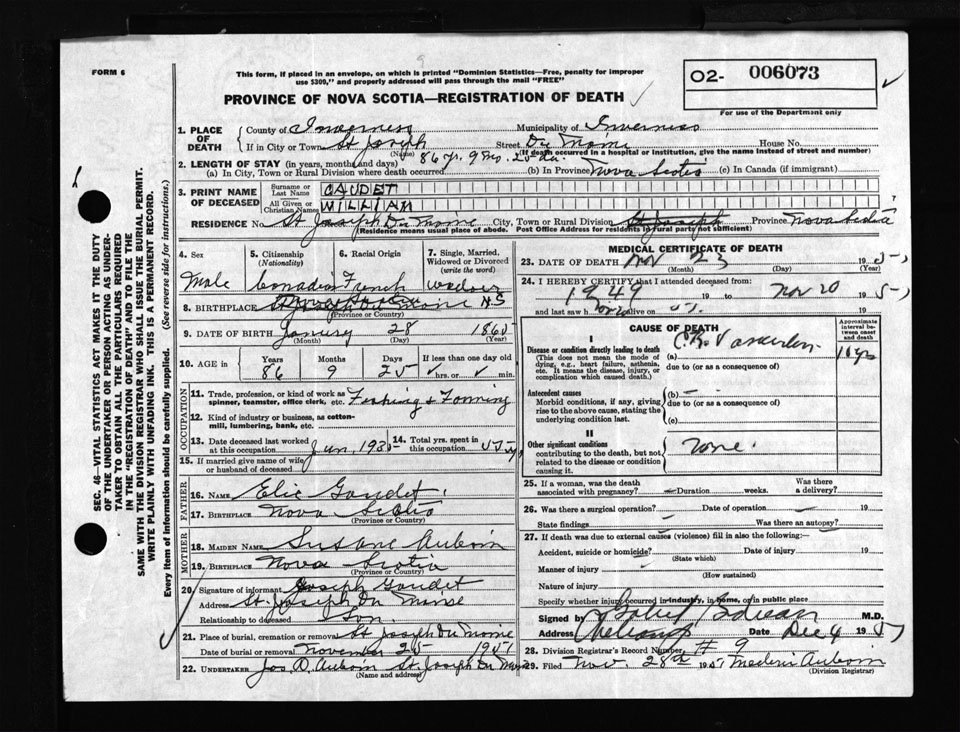 FORM 6
This form, if placed in an envelope, on which is printed "Dominion Statistics—Free, penalty for improper
use $300," and properly addressed will pass through the mail "FREE"
PROVINCE OF NOVA SCOTIA—REGISTRATION OF DEATH
O2- 006073
For use of the Department only
SEC. 46—VITAL STATISTICS ACT MAKES IT THE DUTY
OF THE UNDERTAKER OR PERSON ACTING AS UNDER-
TAKER TO OBTAIN ALL THE PARTICULARS REQUIRED
IN THE "REGISTRATION OF DEATH" AND TO FILE THE
SAME WITH THE DIVISION REGISTRAR WHO SHALL ISSUE THE BURIAL PERMIT.
WRITE PLAINLY WITH UNFADING INK. THIS IS A PERMANENT RECORD.
Every item of Information should be carefully supplied. (See reverse side for instructions.)
1. PLACE OF DEATH
County of Inverness Municipality of Inverness
If in City or Town St Joseph Street Du Moine House No.
(Name) (If death occurred in a hospital or institution, give the name instead of street and number)
2. LENGTH OF STAY (in years, months and days) 86 yr. 9 mo. 25 da.
(a) In City, Town or Rural Division where death occurred (b) In Province Nova Scotia (c) In Canada (if immigrant)
3. PRINT NAME OF DECEASED
Surname or Last Name GAUDET
All Given or Christian Names WILLIAM
RESIDENCE No. St Joseph Du Moine City, Town or Rural Division St Joseph Province Nova Scotia
(Residence means usual place of abode. Post Office Address for residents in rural parts not sufficient)
4. Sex 5. Citizenship (Nationality) 6. Racial Origin 7. Single, Married, Widowed or Divorced (write the word)
Male Canadian French
8. BIRTHPLACE St Joseph Du Moine N.S
(Province or Country)
9. DATE OF BIRTH January 28
(Month) (Day) (Year)
10. AGE in Years Months Days If less than one day old
86 9 25 hrs. or min.
OCCUPATION
11. Trade, profession, or kind of work as spinner, teamster, office clerk, etc. Fishing & Farming
12. Kind of industry or business, as cotton-mill, lumbering, bank, etc.
13. Date deceased last worked at this occupation Jun, 1935 14. Total yrs. spent in this occupation
15. If married give name of wife or husband of deceased
FATHER
16. NAME Elie Gaudet
17. BIRTHPLACE Nova Scotia
(Province or Country)
MOTHER
18. MAIDEN NAME Susane Aucoin
19. BIRTHPLACE Nova Scotia
(Province or Country)
20. Signature of informant Joseph Gaudet
Address St. Joseph Du Moine
Relationship to deceased Son.
21. Place of burial, cremation or removal St Joseph Du Moine
November 25 1951
22. UNDERTAKER Jos. D. Aucoin St Joseph Du Moine
(Name and address)
MEDICAL CERTIFICATE OF DEATH
23. DATE OF DEATH Nov 23 1951
(Month) (Day) (Year)
24. I HEREBY CERTIFY that I attended deceased from:
1949 19 to Nov 20 1951
and last saw h alive on 19
CAUSE OF DEATH
Approximate interval between onset and death
I
Disease or condition directly leading to death
(This does not mean the mode of dying, e.g., heart failure, asthenia, etc. It means the disease, injury, or complication which caused death.)
(a)
10 yrs
due to (or as a consequence of)
Antecedent causes
Morbid conditions, if any, giving rise to the above cause, stating the underlying condition last.
(b) —
due to (or as a consequence of)
(c)
II
Other significant conditions
contributing to the death, but not related to the disease or condition causing it.
none.
25. If a woman, was the death associated with pregnancy? Duration weeks. Was there a delivery?
26. Was there a surgical operation? Date of operation 19
State findings Was there an autopsy?
27. If death was due to external causes (violence) fill in also the following:—
Accident, suicide or homicide? Date of injury 19
(State which)
Manner of injury
(How sustained)
Nature of injury
Specify whether injury occurred in industry, in home, or in public place
Signed by M.D.
Address Cheticamp Date Dec 4 1951
28. Division Registrar's Record Number # 9
29. Filed Nov. 28th 1951 Mederic Aucoin
(Division Registrar)